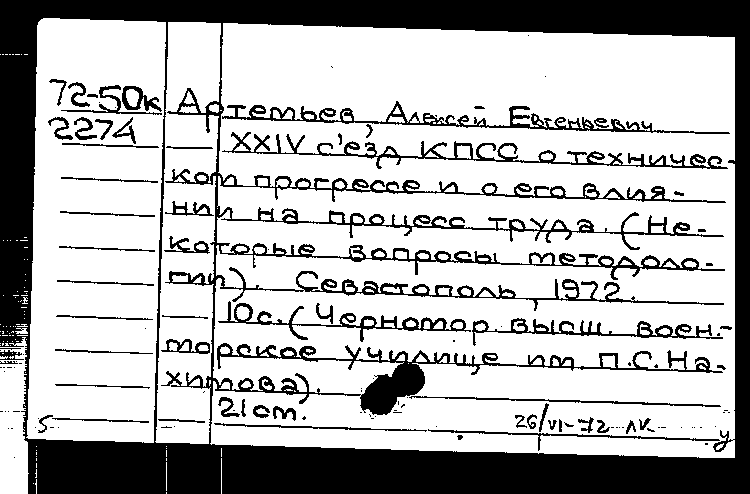 72-50к Артемьев, Алексей Евгеньевич
2274 XXIV с'езд КПСС о техничес-
ком прогрессе и о его влия-
нии на процесс труда. (Не-
которые вопросы методоло-
гии). Севастополь, 1972.
10с. (Черномор высш. воен.-
морское училище им П.С. На-
химова).
21 cm.
5 26/VI-72 ЛК. у